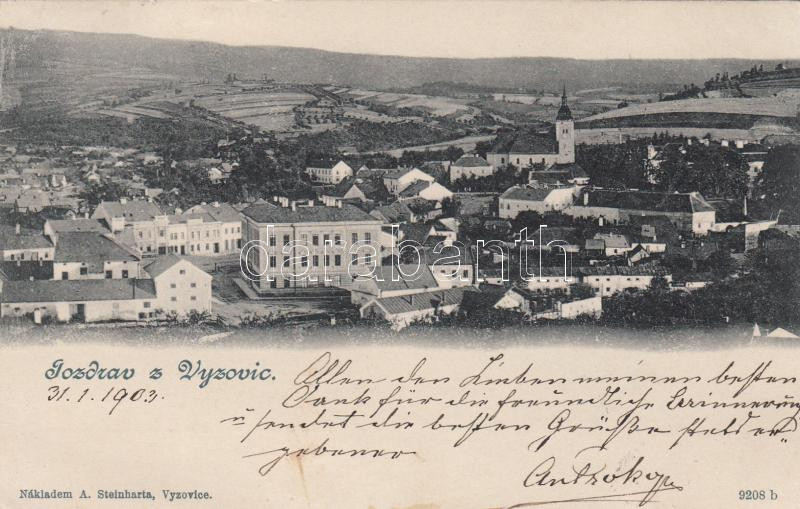 darabanth
Pozdrav z Vyzovic.
31.1.1903.
Allen den Lieben meinen besten
Dank für die freundliche Erinnerung
u sendet die besten Grüße stets er-
gebener
Nákladem A. Steinharta, Vyzovice.
9208 b